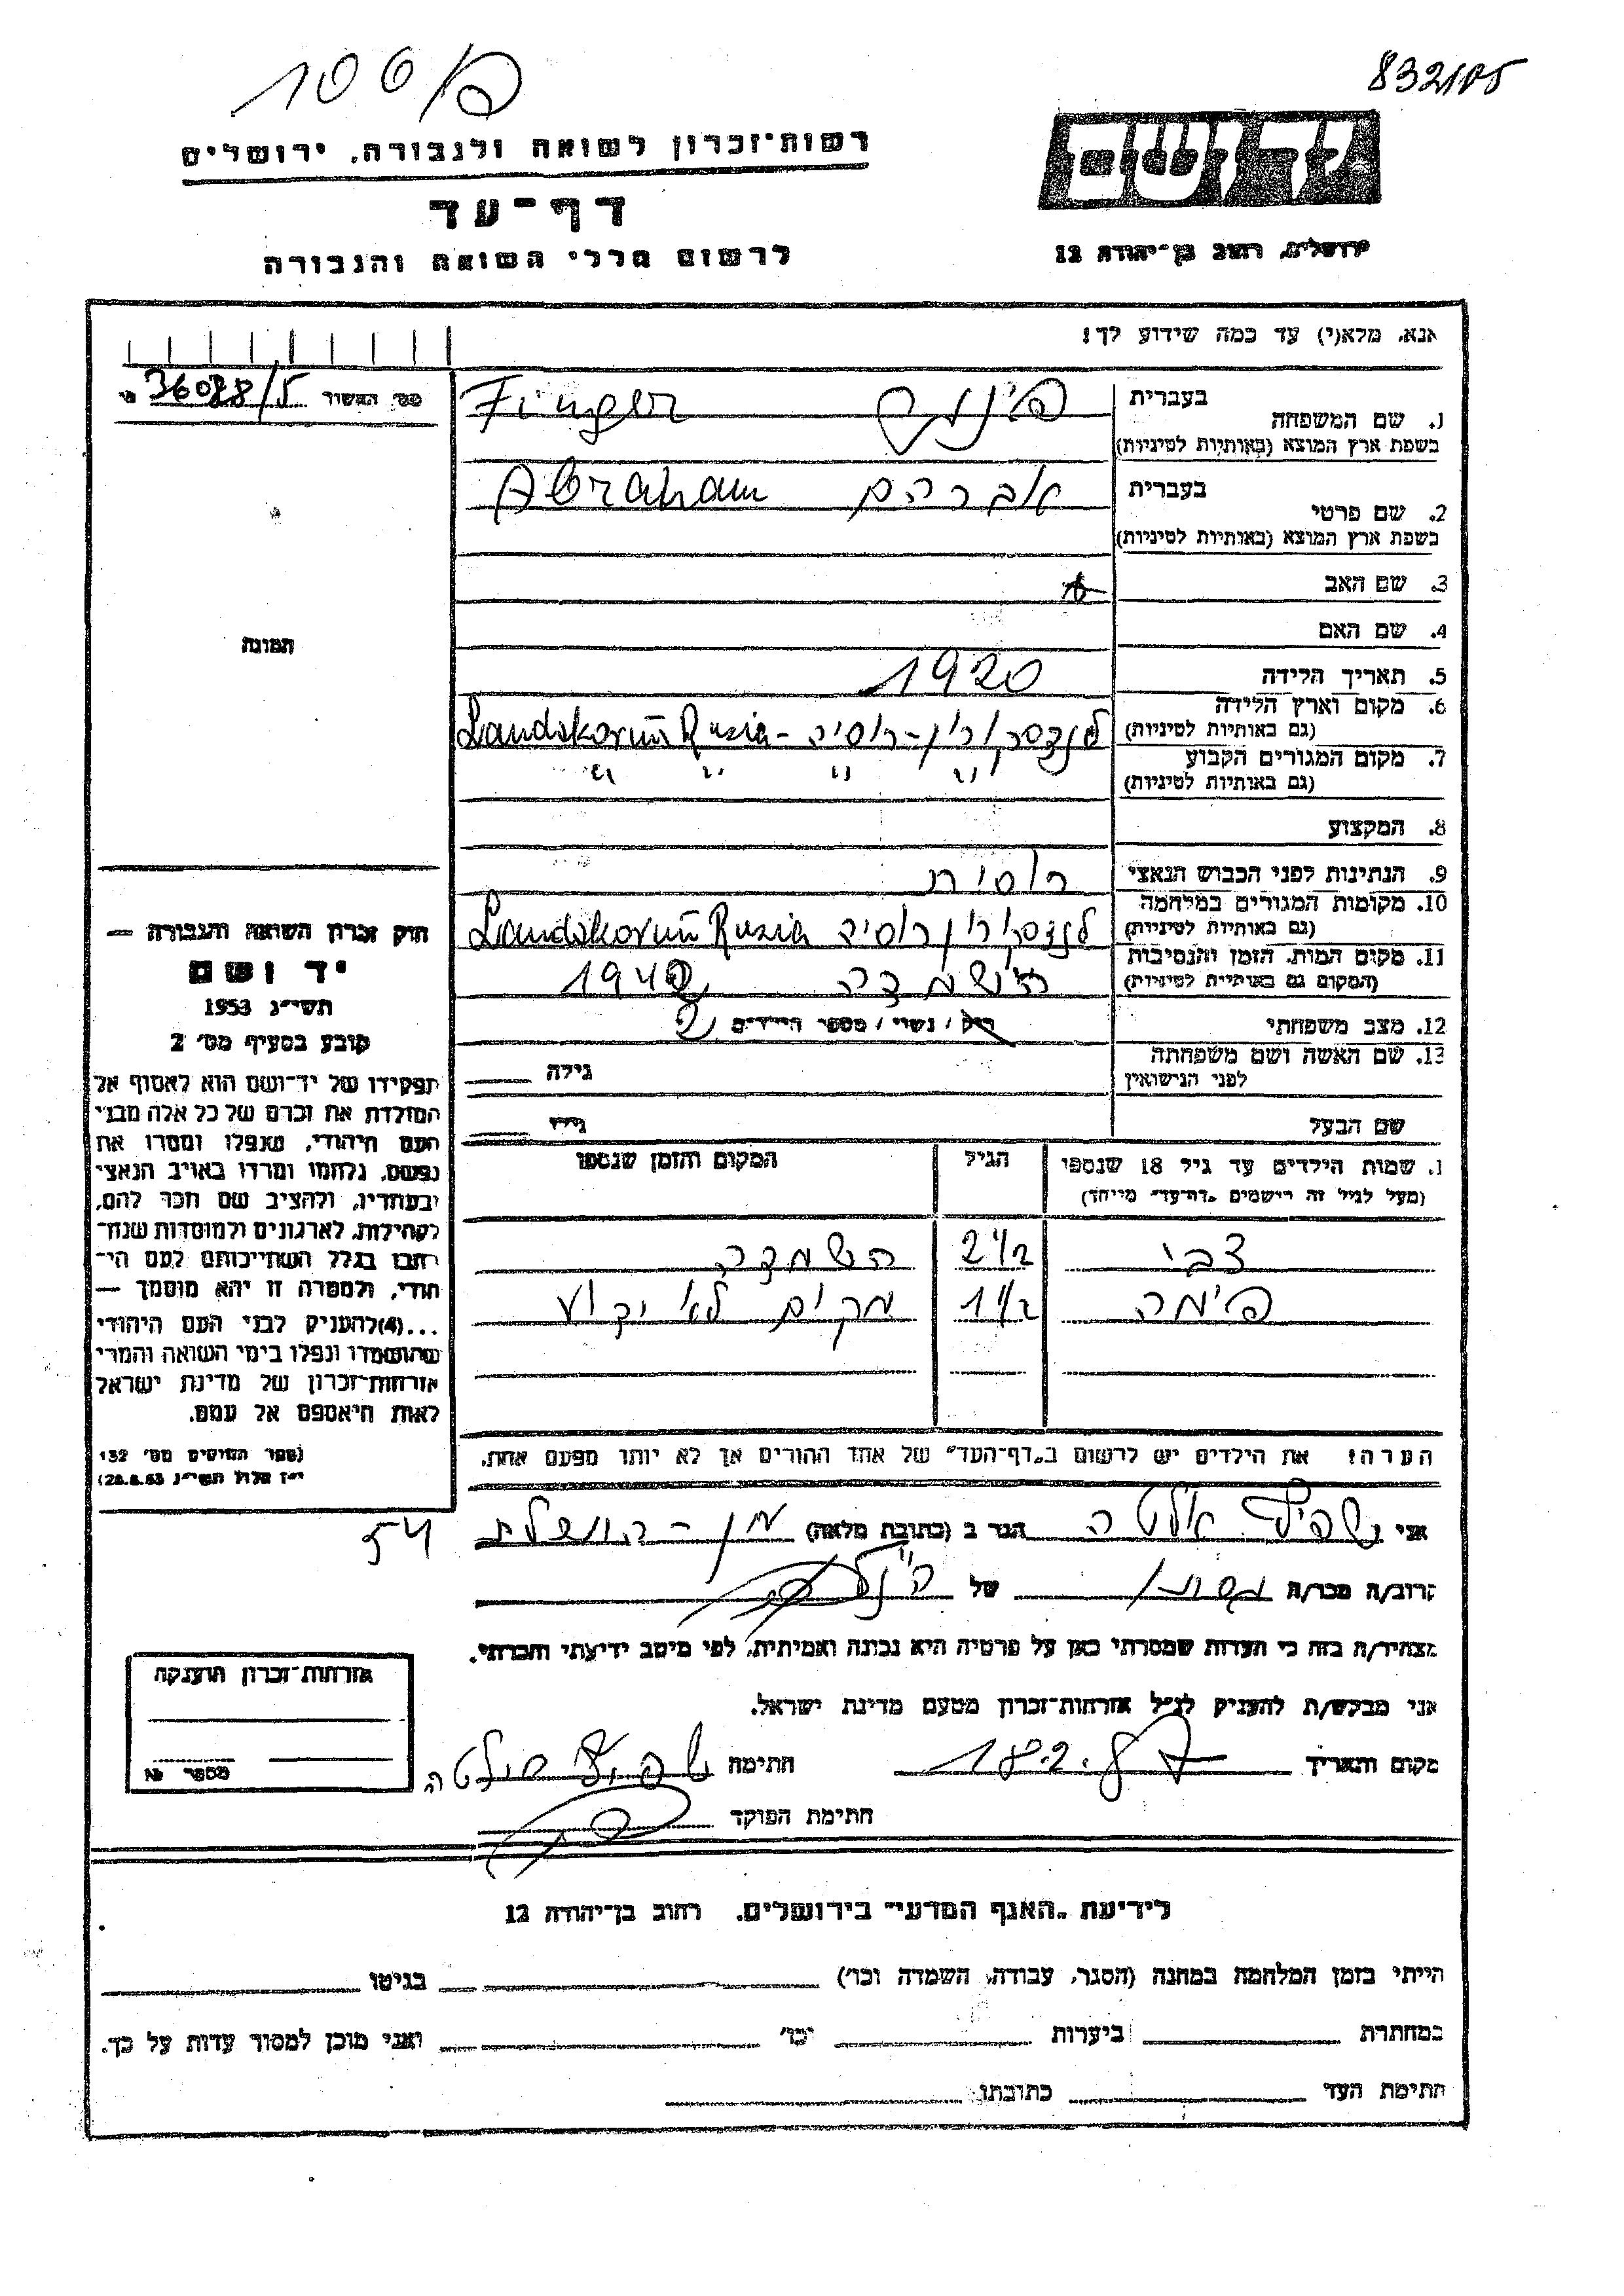 832105
יד ושם
ירושלים, רחוב בן־יהודה 12
רשות־זכרון לשואה ולגבורה, ירושלים
דף־עד
לרשום חללי השואה והגבורה
אנא, מלא(י) עד כמה שידוע לך!
מס׳ האשור 36088/5
בעברית
1. שם המשפחה פינגר Finger
בשפת ארץ המוצא (באותיות לטיניות)
בעברית
2. שם פרטי אברהם Abraham
בשפת ארץ המוצא (באותיות לטיניות)
3. שם האב
4. שם האם
5. תאריך הלידה 1920
6. מקום וארץ הלידה לנדסקורון - רוסיה - Landskorun Rusia
(גם באותיות לטיניות)
7. מקום המגורים הקבוע " " " "
(גם באותיות לטיניות)
8. המקצוע
9. הנתינות לפני הכבוש הנאצי רוסית
10. מקומות המגורים במלחמה לנדסקורון רוסיה Landskorun Rusia
(גם באותיות לטיניות)
11. מקום המות, הזמן והנסיבות השמדה 1942
(המקום גם באותיות לטיניות)
12. מצב משפחתי רוק / נשוי / מספר הילדים 2
13. שם האשה ושם משפחתה גילה
לפני הנישואין
שם הבעל גילו
תמונה
חוק זכרון השואה והגבורה —
יד ושם
תשי״ג 1953
קובע בסעיף מס׳ 2
תפקידו של יד־ושם הוא לאסוף אל
המולדת את זכרם של כל אלה מבני
העם היהודי, שנפלו ומסרו את
נפשם, נלחמו ומרדו באויב הנאצי
ובעוזריו, ולהציב שם וזכר להם,
לקהילות, לארגונים ולמוסדות שנח־
רבו בגלל השתייכותם לעם הי־
הודי, ולמטרה זו יהא מוסמך —
...(4) להעניק לבני העם היהודי
שהושמדו ונפלו בימי השואה והמרי
אזרחות־זכרון של מדינת ישראל
לאות היאספם אל עמם.
(ספר החוקים מס׳ 132
י״ז אלול תשי״ג 28.8.53)
1. שמות הילדים עד גיל 18 שנספו הגיל המקום והזמן שנספו
(מעל לגיל זה רישמים „דף־עד״ מייחד)
צבי 2 1/2 השמדה
פימה 1 1/2 מקום לא ידוע
הערה! את הילדים יש לרשום ב„דף־העד״ של אחד ההורים אך לא יותר מפעם אחת.
אני אלטה הגר ב (כתובת מלאה)
54
קרוב/ה מכר/ה של
מצהיר/ה בזה כי העדות שמסרתי כאן על פרטיה היא נכונה ואמיתית, לפי מיטב ידיעתי והכרתי.
אני מבקש/ת להעניק לנ״ל אזרחות־זכרון מטעם מדינת ישראל.
מקום ותאריך חתימה
חתימת הפוקד
אזרחות־זכרון הוענקה
מספר №
לידיעת „האגף המדעי״ בירושלים, רחוב בן־יהודה 12
הייתי בזמן המלחמה במחנה (הסגר, עבודה, השמדה וכו׳) בגיטו
במחתרת ביערות וכו׳ ואני מוכן למסור עדות על כך.
חתימת העד כתובתו